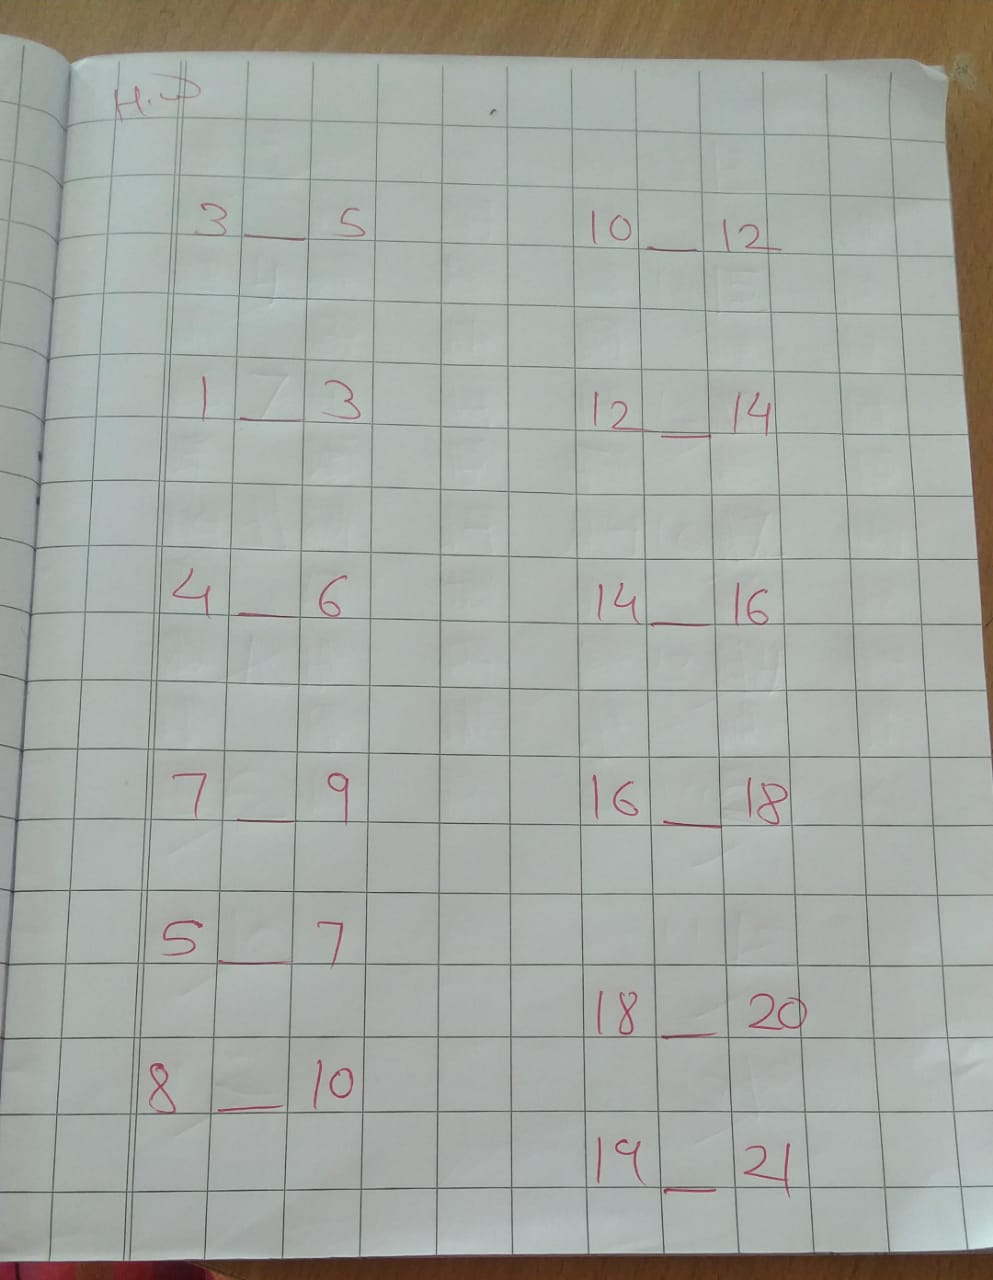 H.W
3 __ 5
10 __ 12
1 __ 3
12 __ 14
4 __ 6
14 __ 16
7 __ 9
16 __ 18
5 __ 7
18 __ 20
8 __ 10
19 __ 21